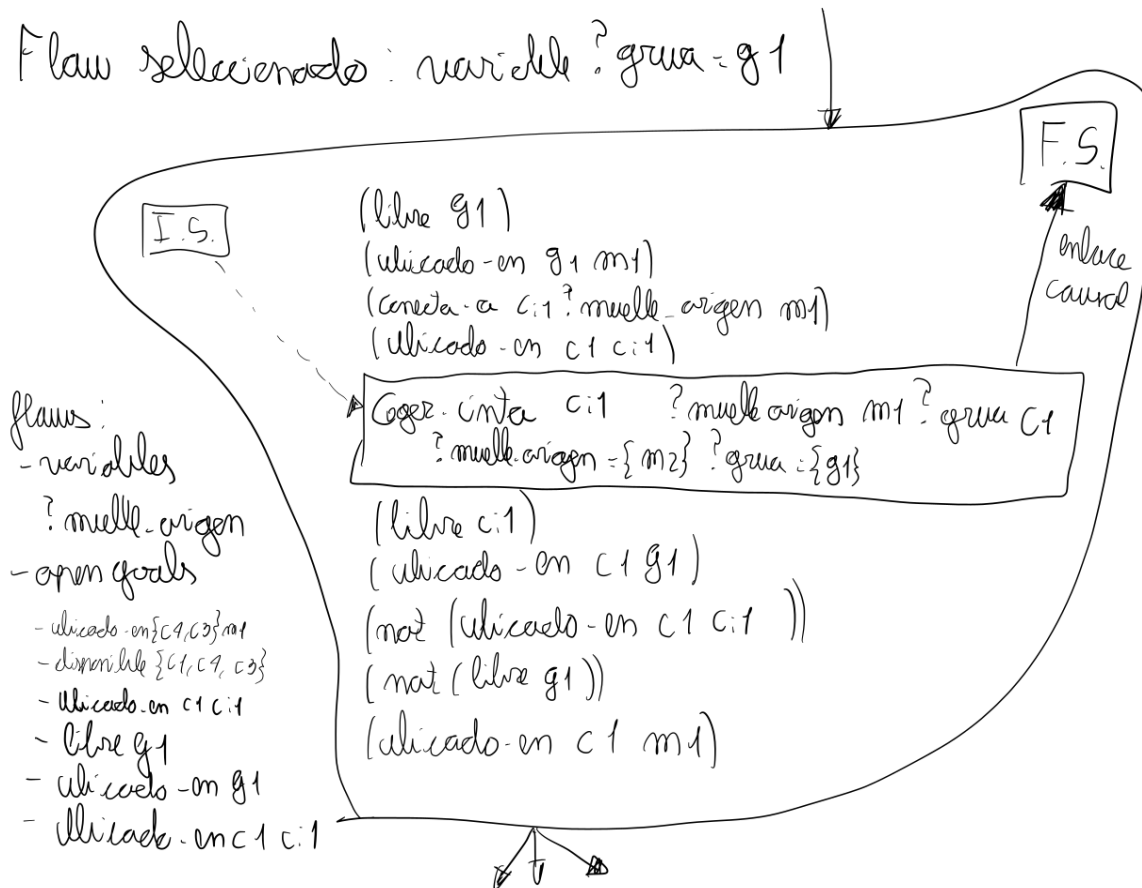 Flaw selleccionado : variable ? grua = g1
F.S.
I.S.
enlace
causal
(libre g1)
(ubicado-en g1 m1)
(conecta-a ci1 ? muelle-origen m1)
(ubicado-en c1 ci1)
Coger-cinta ci1 ? muelle origen m1 ? grua c1
? muelle-origen = {m2} ? grua = {g1}
(libre ci1)
(ubicado-en c1 g1)
(not (ubicado-en c1 ci1 ))
(not (libre g1))
(ubicado-en c1 m1)
flaws:
- variables
? muelle-origen
- open goals
- ubicado-en {c4, c3} m1
- disponible {c1, c4, c3}
- Ubicado-en c1 ci1
- libre g1
- ubicado-en g1
- Ubicado-en c1 ci1